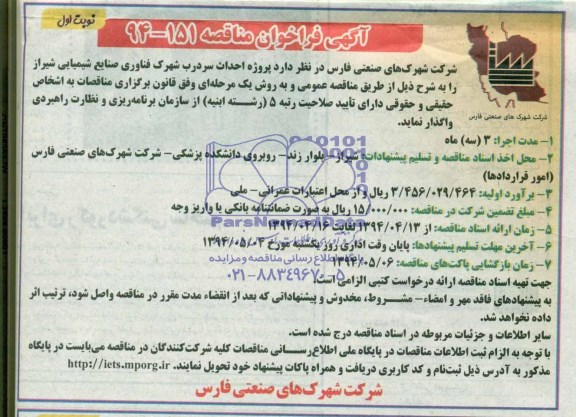 نوبت اول
آگهی فراخوان مناقصه ۱۵۱-۹۴
شرکت شهرک های صنعتی فارس
شرکت شهرک‌های صنعتی فارس در نظر دارد پروژه احداث سردرب شهرک فناوری صنایع شیمیایی شیراز
را به شرح ذیل از طریق مناقصه عمومی و به روش یک مرحله‌ای وفق قانون برگزاری مناقصات به اشخاص
حقیقی و حقوقی دارای تأیید صلاحیت رتبه ۵ (رشته ابنیه) از سازمان برنامه‌ریزی و نظارت راهبردی
واگذار نماید.
۱- مدت اجرا: ۳ (سه) ماه
۲- محل اخذ اسناد مناقصه و تسلیم پیشنهادات: شیراز- بلوار زند- روبروی دانشکده پزشکی- شرکت شهرک‌های صنعتی فارس
(امور قراردادها)
۳- برآورد اولیه: ۳/۴۵۶/۰۲۹/۴۶۴ ریال و از محل اعتبارات عمرانی- ملی
۴- مبلغ تضمین شرکت در مناقصه: ۱۵/۰۰۰/۰۰۰ ریال به صورت ضمانتنامه بانکی یا واریز وجه
۵- زمان ارائه اسناد مناقصه: از ۱۳۹۴/۰۴/۱۳ لغایت ۱۳۹۴/۰۴/۱۶
۶- آخرین مهلت تسلیم پیشنهادها: پایان وقت اداری روز یکشنبه مورخ ۱۳۹۴/۰۵/۰۴
۷- زمان بازگشایی پاکت‌های مناقصه: ۱۳۹۴/۰۵/۰۶
جهت تهیه اسناد مناقصه ارائه درخواست کتبی الزامی است.
به پیشنهادهای فاقد مهر و امضاء- مشروط، مخدوش و پیشنهاداتی که بعد از انقضاء مدت مقرر در مناقصه واصل شود، ترتیب اثر
داده نخواهد شد.
سایر اطلاعات و جزئیات مربوطه در اسناد مناقصه درج شده است.
با توجه به الزام ثبت اطلاعات مناقصات در پایگاه ملی اطلاع‌رسانی مناقصات کلیه شرکت‌کنندگان در مناقصه می‌بایست در پایگاه
مذکور به آدرس ذیل ثبت‌نام و کد کاربری دریافت و همراه پاکات پیشنهاد خود تحویل نمایند. http://iets.mporg.ir
شرکت شهرک‌های صنعتی فارس
ParsNamadData
پایگاه اطلاع رسانی مناقصه و مزایده
۰۲۱-۸۸۳۴۹۶۷۰-۵